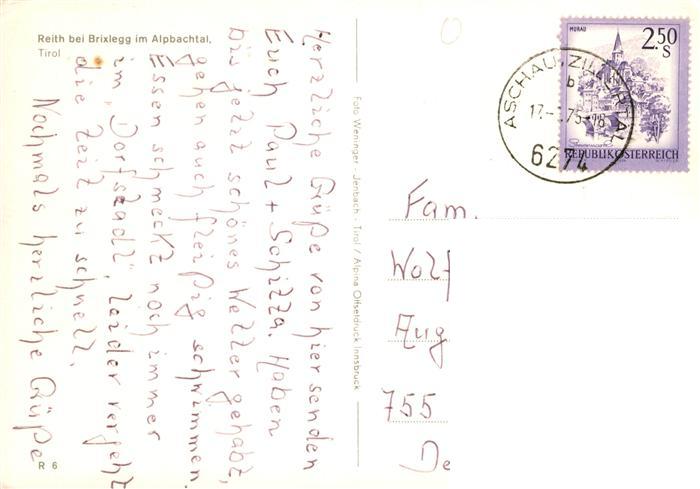 Reith bei Brixlegg im Alpbachtal,
Tirol
Herzliche Grüße von hier senden
Euch Paul + Schizza. Haben
bis jetzt schönes Wetter gehabt,
gehen auch fleißig schwimmen.
Essen schmeckt noch immer
im "Dorfstadl", leider vergeht
die Zeit zu schnell.
Nochmals herzliche Grüße
R 6
Foto Weninger - Jenbach - Tirol / Alpina Offsetdruck Innsbruck
MURAU
2.50
S
REPUBLIK ÖSTERREICH
ASCHAU, ZILLERTAL
b
17. 75-18
6274
Fam.
Wolf
Aug
755
De